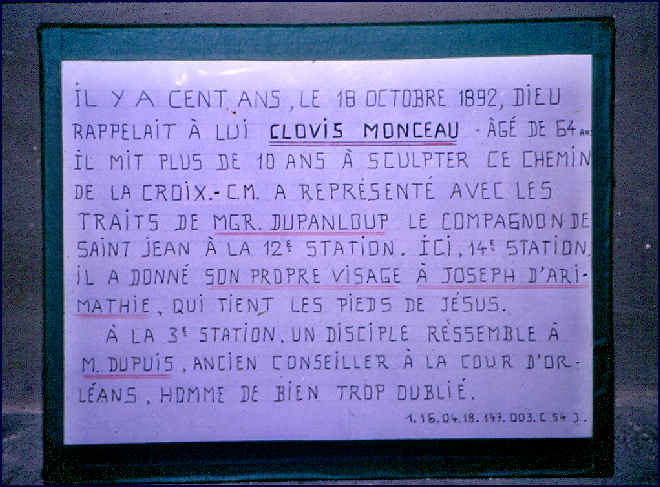 IL Y A CENT ANS, LE 18 OCTOBRE 1892, DIEU
RAPPELAIT À LUI CLOVIS MONCEAU. ÂGÉ DE 64 ANS
IL MIT PLUS DE 10 ANS À SCULPTER CE CHEMIN
DE LA CROIX.- C.M. A REPRÉSENTÉ AVEC LES
TRAITS DE MGR. DUPANLOUP LE COMPAGNON DE
SAINT JEAN À LA 12E STATION. ICI, 14E STATION,
IL A DONNÉ SON PROPRE VISAGE À JOSEPH D'ARI-
MATHIE, QUI TIENT LES PIEDS DE JÉSUS.
À LA 3E STATION, UN DISCIPLE RÉSSEMBLE À
M. DUPUIS, ANCIEN CONSEILLER À LA COUR D'OR-
LÉANS, HOMME DE BIEN TROP OUBLIÉ.